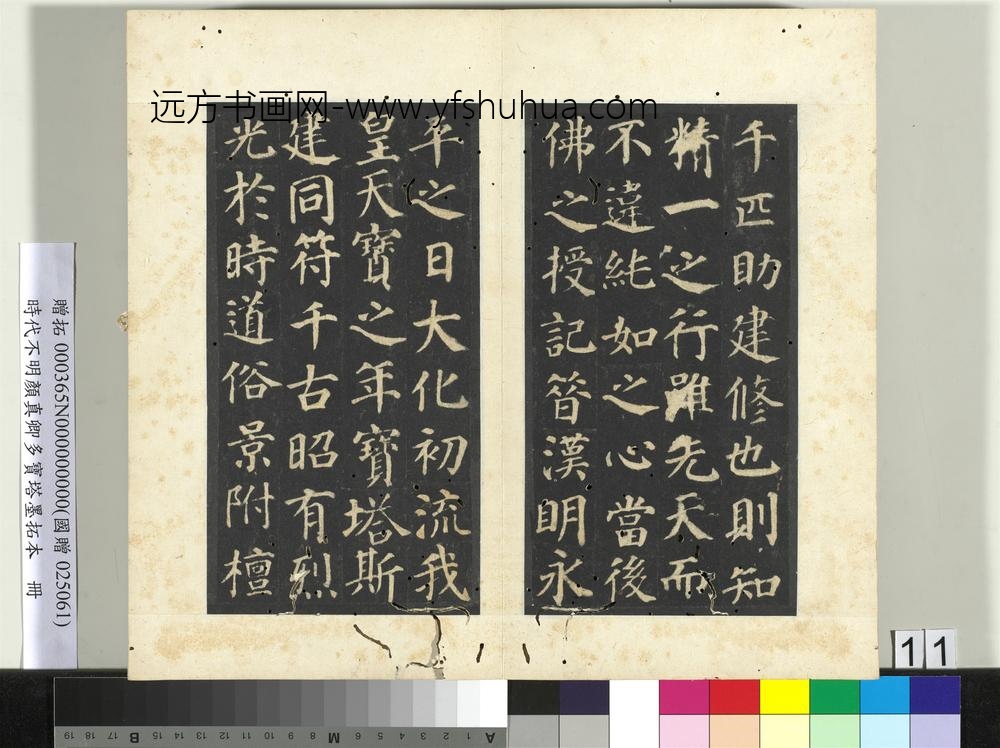 远方书画网-www.yfshuhua.com
千匹助建修也則知
精一之行雖先天而
不違純如之心當後
佛之授記昔漢明永
平之日大化初流我
皇天寶之年寶塔斯
建同符千古昭有烈
光於時道俗景附檀
贈拓 000365N000000000(國贈 025061)
時代不明顏真卿多寶塔墨拓本 冊
11
19 18 17 B 16 15 14 13 12 11 10 9 8 M 7 6 5 4 3 2 1 A